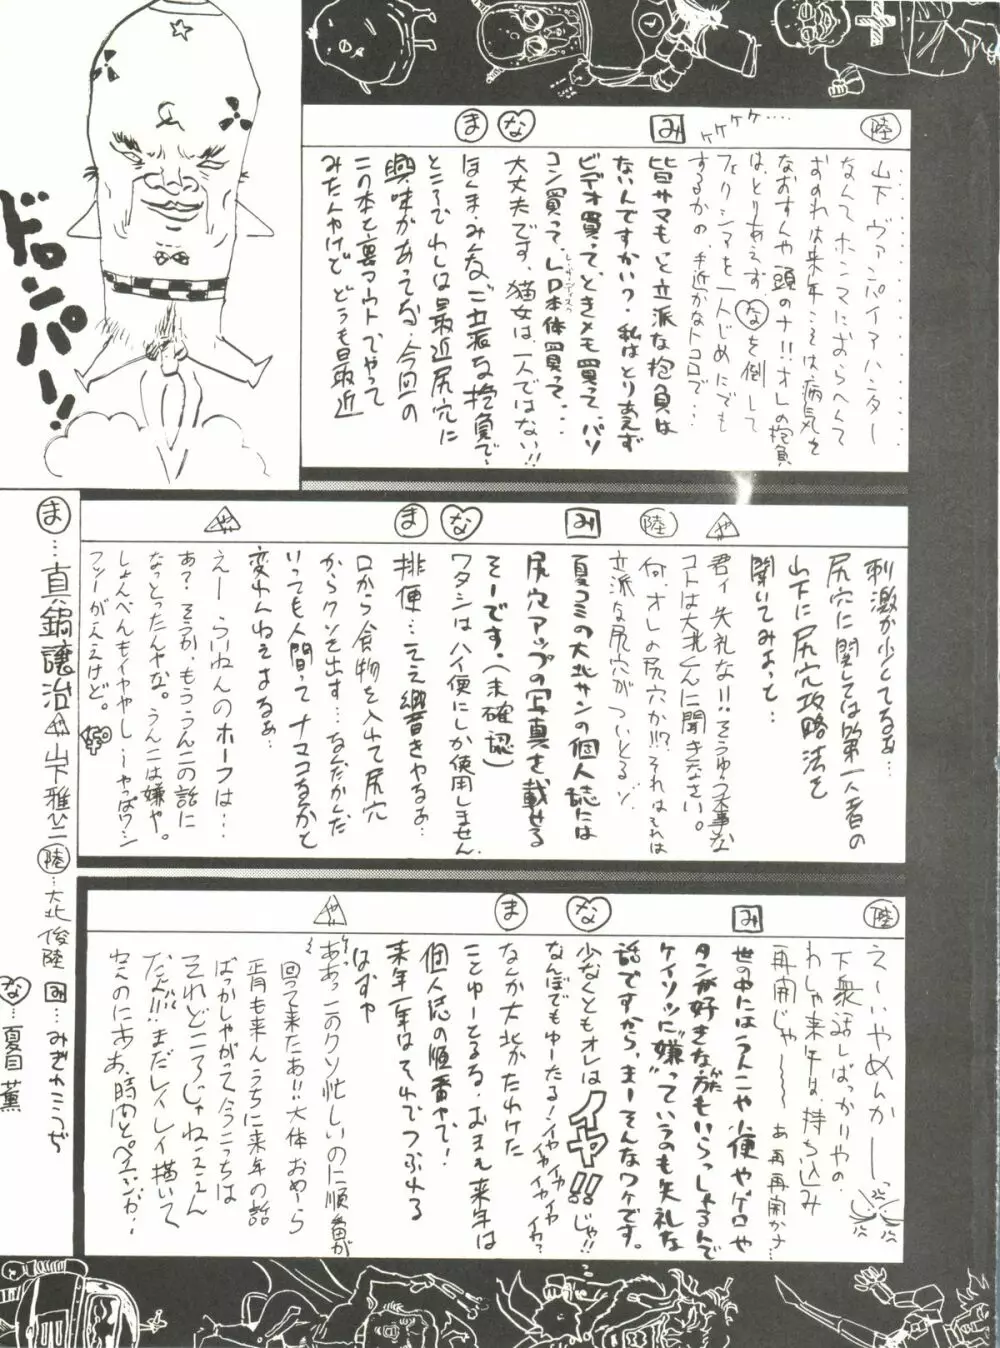 陸
山下ヴァンパイアハンター
なんてホンマにおらへんて
おすれは来年こそは病気を
なおすんや頭のナ!!オレの抱負
は、とりあえず、なを倒して
フェリシアを一人じめにでも
するかの、手近かなトコロで…
ケケケケ…
み
皆サマもっと立派な抱負は
ないんですかい?私はとりあえず
ビデオ買って、ときメモ買って、パソ
コン買って、LD本体買って…
な
大丈夫です、猫女は、一人ではない!!
ま
ほんま、みんな、ご立派な抱負で、
ところでわしは最近尻穴に
興味があってな、今回の
この本も裏マウントでやって
みたんやけど、どうも最近
ドロンパー!!
刺激が少とてなぁ…
尻穴に関しては第一人者の
山下に尻穴攻略法を
聞いてみよっと
や
君ィ失礼な!!そうゆう大事な
コトは大北くんに聞きなさい。
陸
何、オレの尻穴か!!?それはそれは
立派な尻穴がついとるゾ
み
夏コミの大北サンの個人誌には
尻穴アップの写真を載せる
そーです。(未確認)
な
ワタシはハイ便にしか使用しません
ま
排便…ええ響きやなぁ…
口から食物を入れて尻穴
からクソを出す…なんだかんだ
いっても人間ってナマコなんかと
変わんねえよなぁ…
や
えー らいねんのホーフは…
あ?そうか、もううんこの話に
なっとったんやな。うんこは嫌や。
しょんべんもイヤやし…やっぱワシ
フツーがええけど。
陸
え〜いやめんかーっ
下衆な話しばっかりやの
わしゃ来年は、持ち込み
再開じゃ〜〜 あ 再再開かナ…
み
世の中にはうんこや小便やゲロや
タンが好きな方もいらっしゃるんで
ケイソツに"嫌"っていうのも失礼な
話ですから、まーそんなワケです。
な
少なくともオレはイヤ!!じゃ!!
なんぼでもゆーたる!イヤイヤイヤイヤイヤイヤ?
ま
なんか大北がたわけた
ことゆーとるる、おまえ来年は
個人誌の順番やで!
来年一年はそれでつぶれる
はずや
や
ああっこのクソ忙しいのに順番が
回って来たあ!!大体おめーら
正月も来んうちに来年の話
ばっかしやがって今こっちは
それどころじゃねええん
だよ!!まだレイレイ描いて
ま…真鍋譲治
や…山下雅心
陸…大北俊陸
み…みぎわこうぢ
な…夏目薫